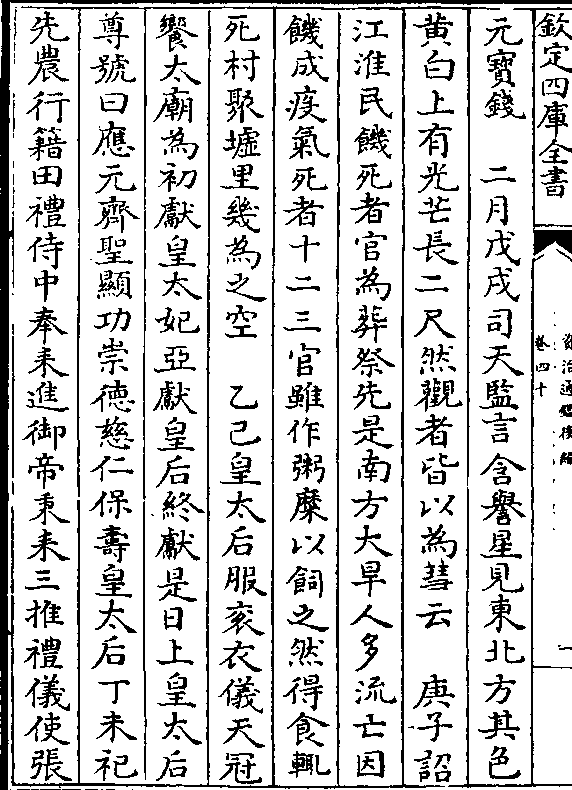 欽定四庫全書
卷四十
元寶錢　二月戊戌司天監言含譽星見東北方其色
黄白上有光芒長二尺然觀者皆以為彗云　庚子詔
江淮民饑死者官為葬祭先是南方大旱人多流亡因
饑成疫氣死者十二三官雖作粥糜以飼之然得食輒
死村聚墟里幾為之空　乙己皇太后服衮衣儀天冠
饗太廟為初獻皇太妃亞獻皇后終獻是日上皇太后
尊號曰應元齊聖顯功崇德慈仁保壽皇太后丁未祀
先農行籍田禮侍中奉耒進御帝秉耒三推禮儀使張